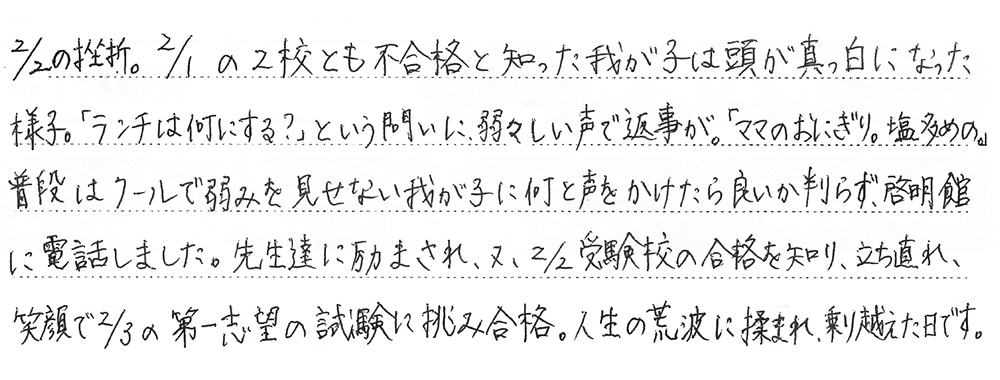 2/2の挫折。2/1の2校とも不合格と知った我が子は頭が真っ白になった
様子。「ランチは何にする?」という問いに、弱々しい声で返事が。「ママのおにぎり。塩多めの。」
普段はクールで弱みを見せない我が子に何と声をかけたら良いか判らず、啓明館
に電話しました。先生達に励まされ、又、2/2受験校の合格を知り、立ち直れ、
笑顔で2/3の第一志望の試験に挑み合格。人生の荒波に揉まれ、乗り越えた日です。